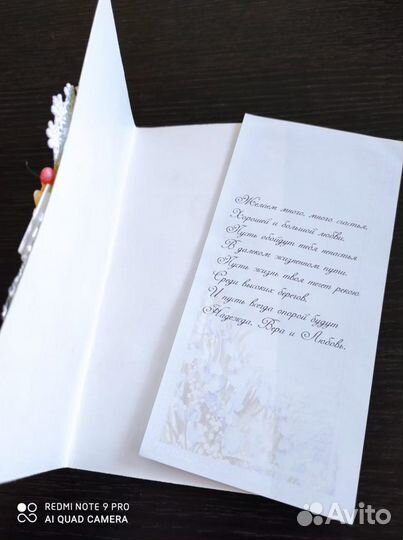 Желаем много, много счастья,
Хорошей и большой любви.
Пусть обойдут тебя ненастья
В далеком жизненном пути.
Пусть жизнь твоя течет рекою
Среди высоких берегов.
И пусть всегда опорой будут
Надежда, Вера и Любовь.
REDMI NOTE 9 PRO
AI QUAD CAMERA
Avito